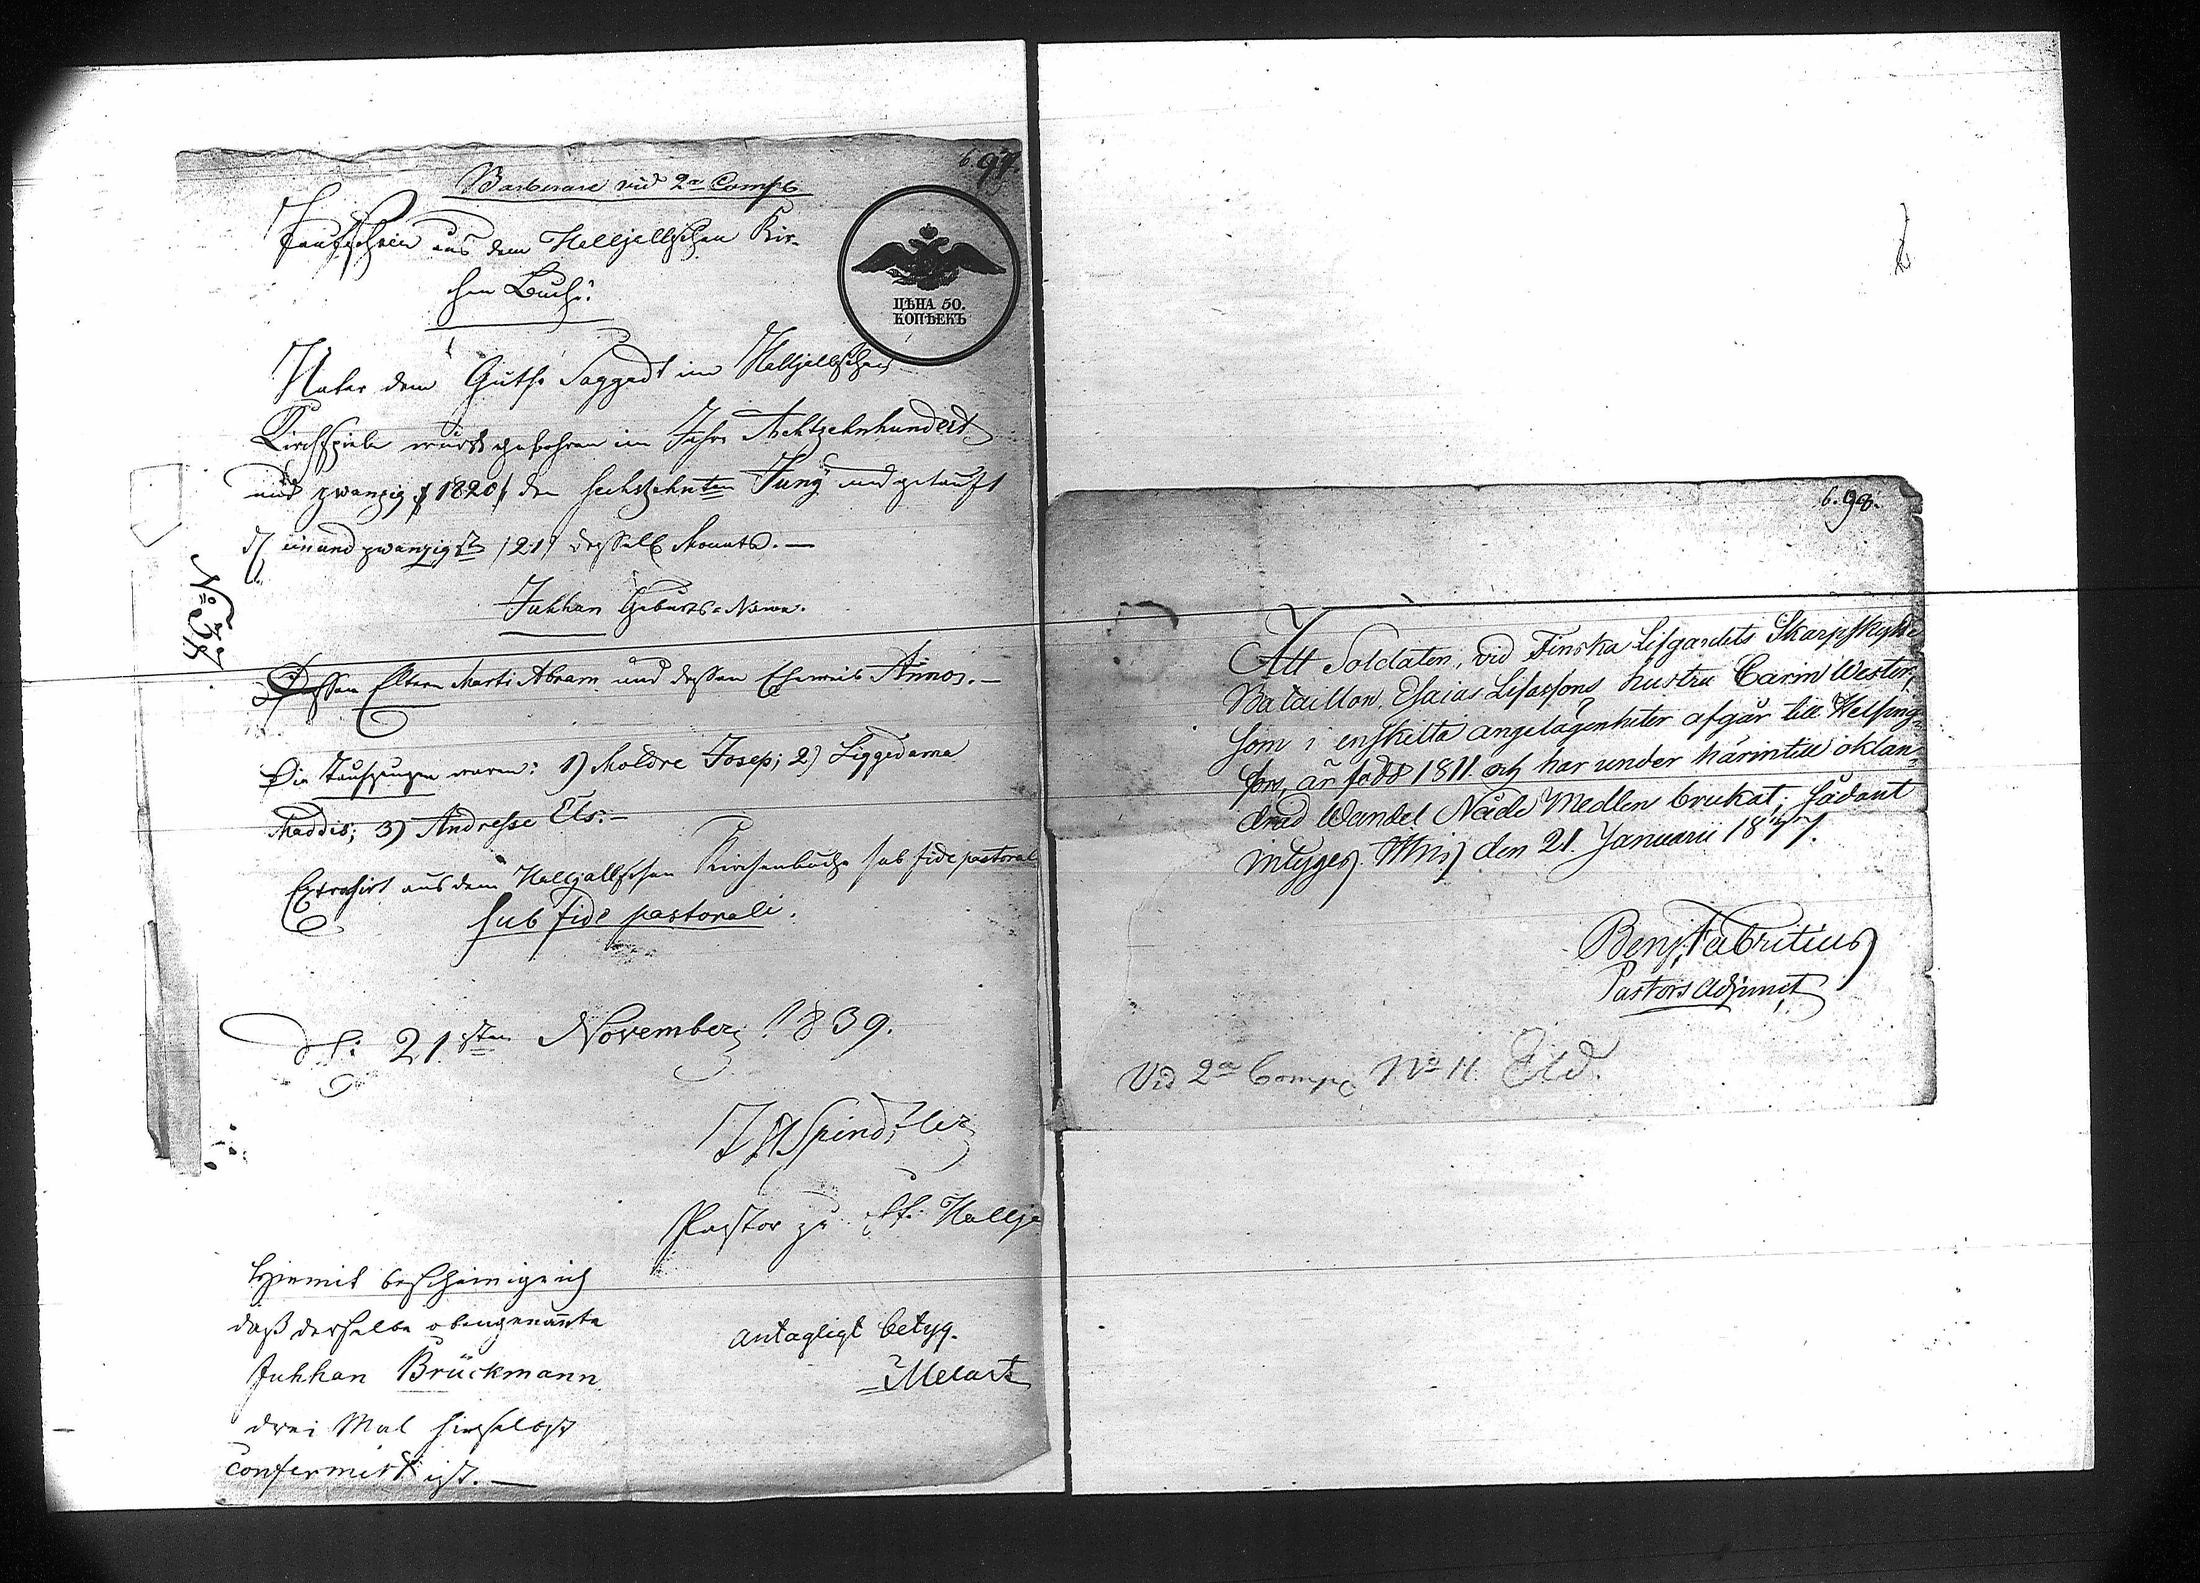 6.97.
Barberare vid 2a Comp
Taufschein aus dem Halljellschen Kir-
chen Buch:
ЦѢНА 50.
КОПѢЕКЪ
Unter dem Guthe Saggad im Halljellschen
Kirchspiele wurde gebohren im Jahre Achtzehnhundert
und zwanzig /1820/ den sechszehnten Juny und getauft
d. ein und zwanzigst /21/ desselb Monats.—
Juhhan Geburts-Name.
Dessen Eltern Marti Abram und dessen Eheweib Anno.—
Die Taufzeugen waren: 1) Moldre Josep; 2) Liggedama
Maddis; 3) Andresse Els.—
Extrahirt aus dem Halljallschen Kirchenbuche sub fide pastoral
sub fide pastorali.
d. 21.sten November 1839.
Spindler
Pastor zu St. Hallja
Hiermit bescheinige ich
daß derselbe obengenannte
Juhhan Brückmann
drei Mal hieselbst
confermirt ist.—
antagligt betyg.
Melart
No 37
6.98.
Att Soldaten, vid Finska Lifgardets Skarpskytte
Bataillon, Esaias Lisassons hustru Carin Wester,
som i enskilta angelägenheter afgår till Helsing-
fors, är född 1811. och har under härintill oklan-
drad Wandel Nåde Medlen brukat; sådant
intyger. den 21. Januarii 18
Benj. Fabritius
Pastors adjunct
Vid 2a Comp No 11.